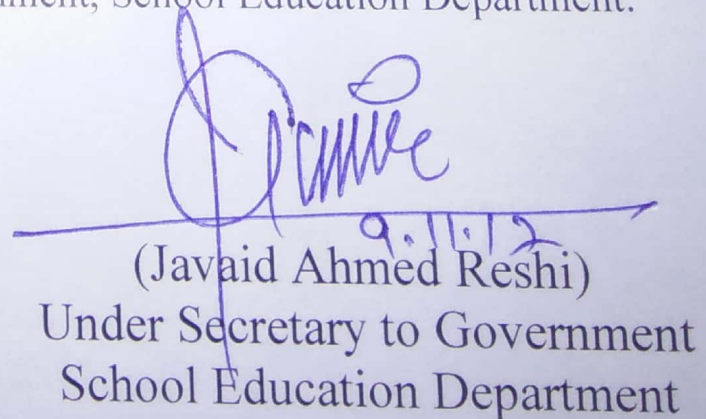 School Education Department.
9.11.12
(Javaid Ahmed Reshi)
Under Secretary to Government
School Education Department